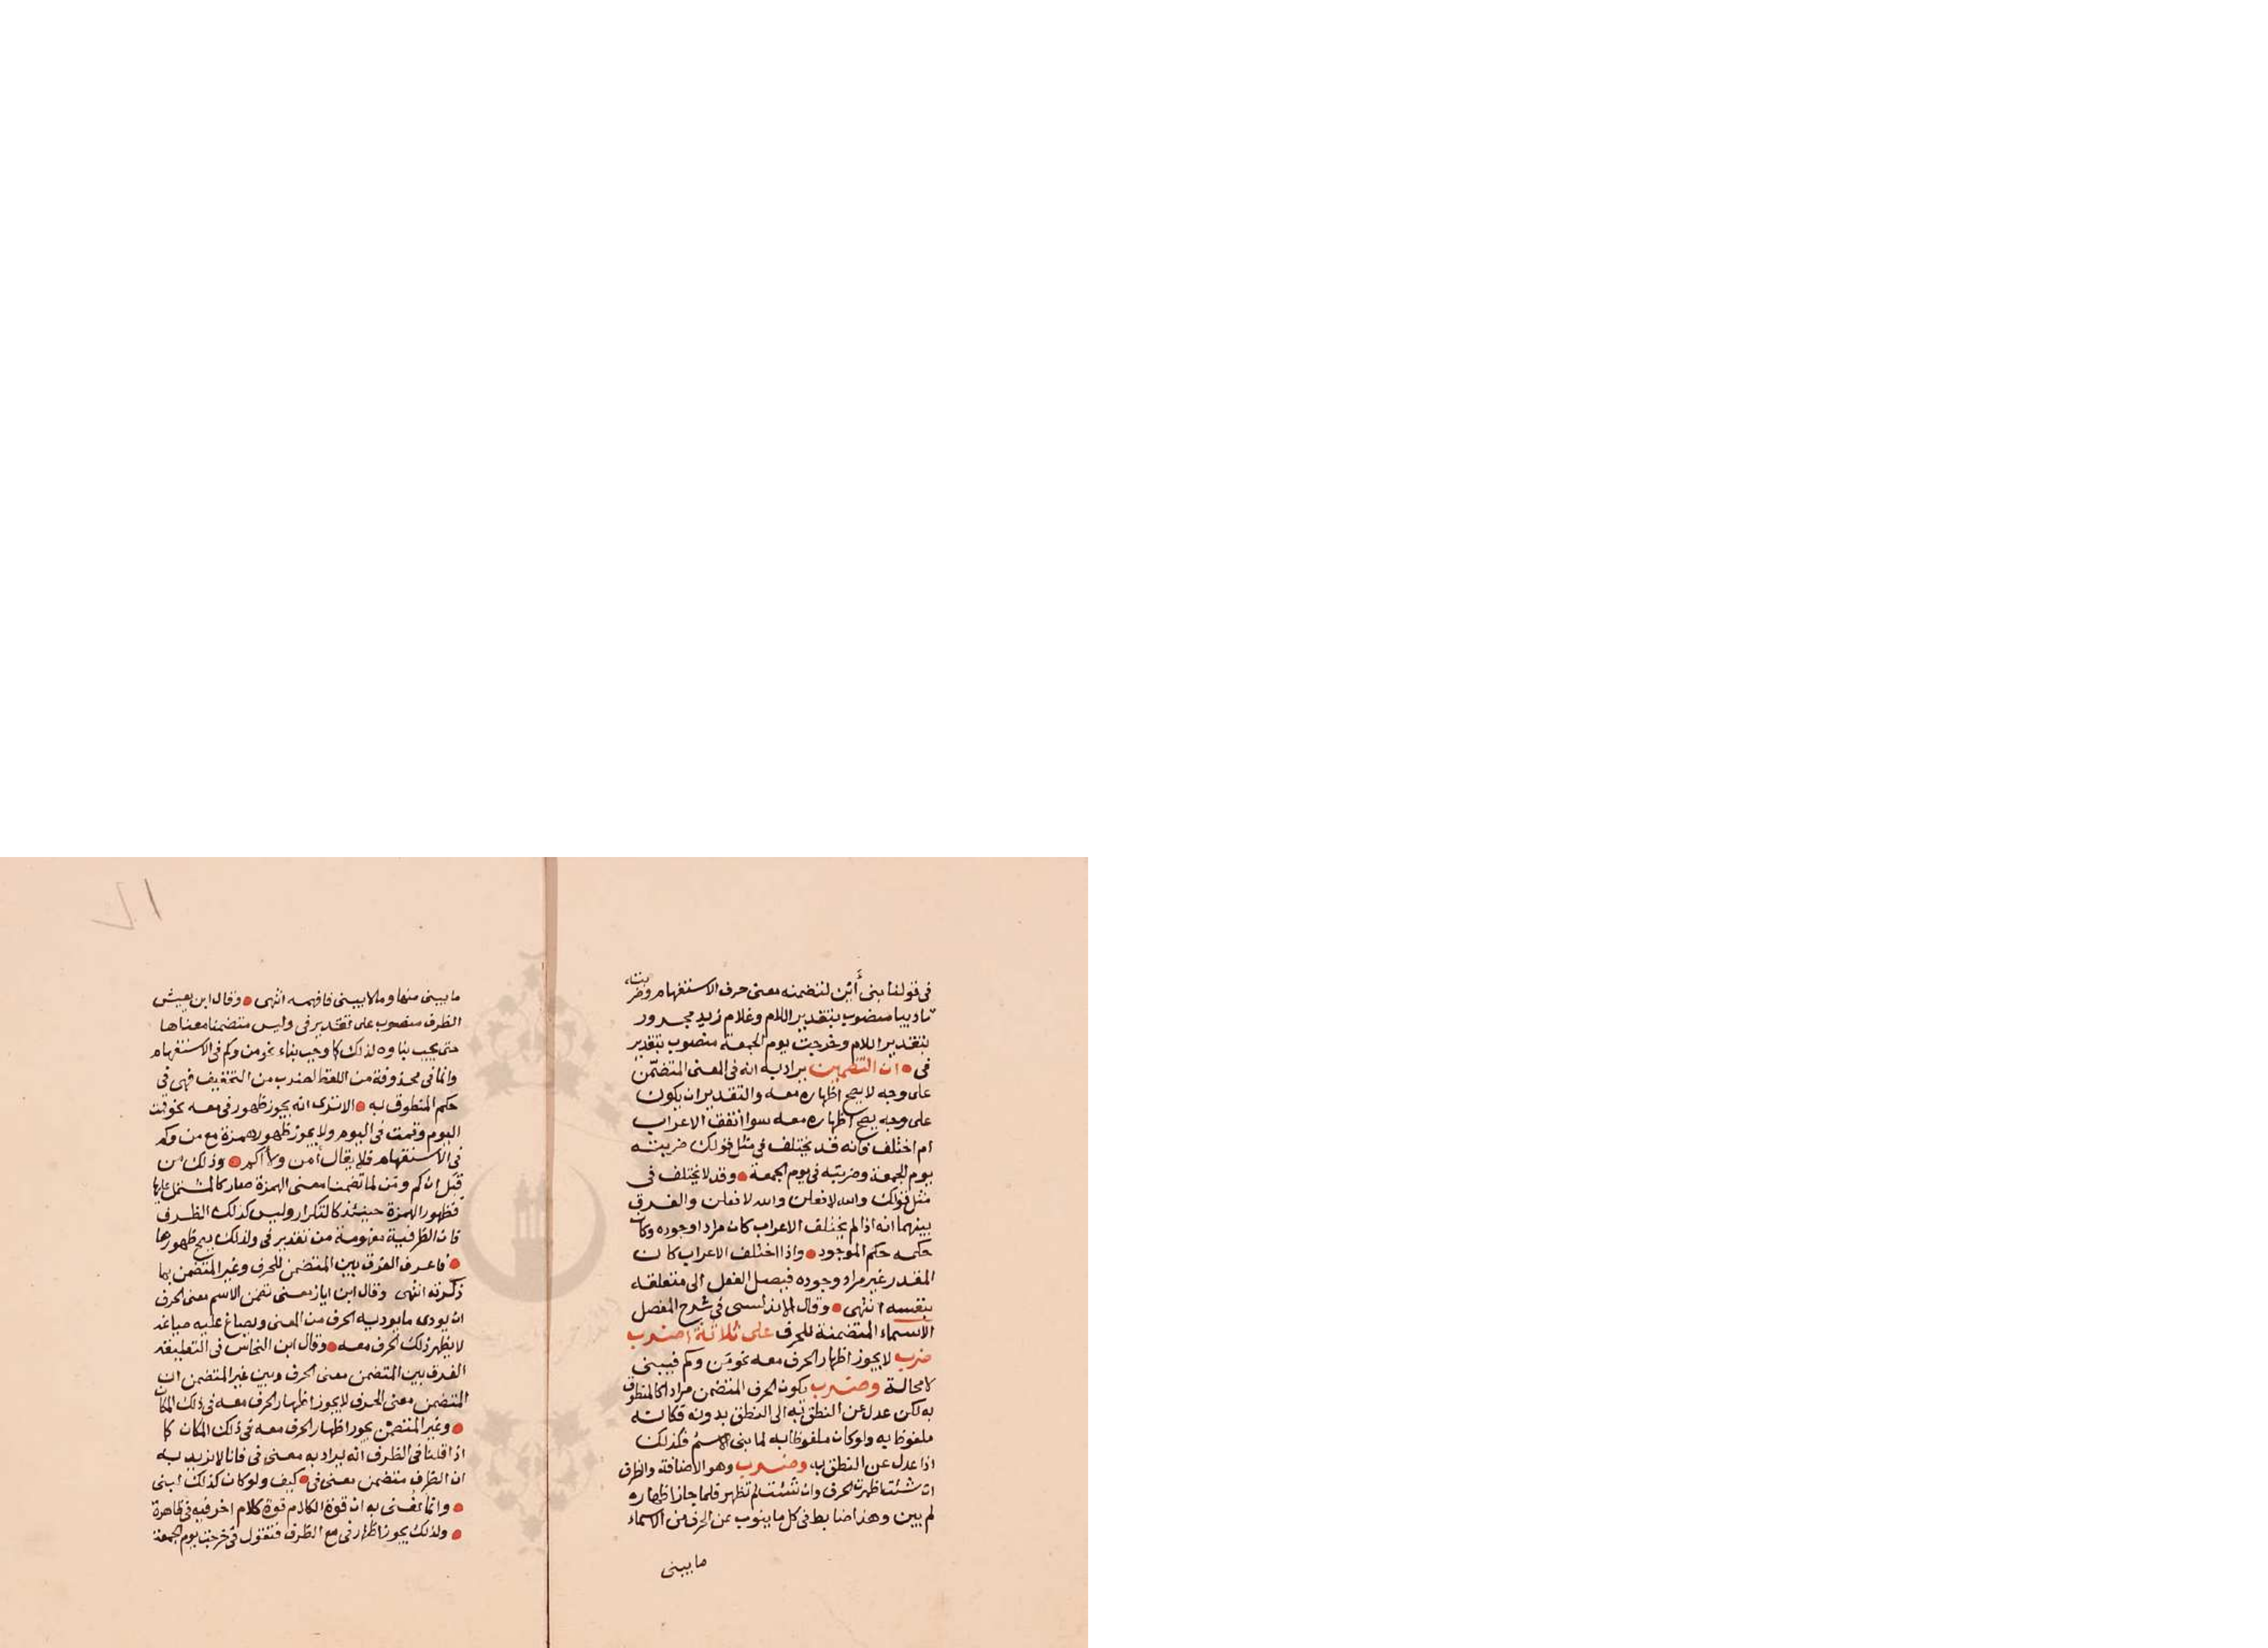 في قولنا بنى أين لتضمنه معنى حرف الاستفهام وضربته
تاديبا منصوب بتقدير اللام وغلام زيد مجرور
بتقدير اللام وخرجت يوم الجمعة منصوب بتقدير
في ان التضمين يراد به انه في المعنى المتضمن
على وجه لا يصح اظهاره معه والتقدير ان يكون
على وجه يصح اظهاره معه سوا اتفق الاعراب
ام اختلف فانه قد يختلف في مثل قولك ضربته
يوم الجمعة وضربته في يوم الجمعة وقد لا يختلف في
مثل قولك والله لافعلن والله لافعلن والفرق
بينهما انه اذا لم يختلف الاعراب كان مرادا وجوده وكان
حكمه حكم الموجود واذا اختلف الاعراب كان
المقدر غير مراد وجوده فيصل الفعل الى متعلقه
بنفسه انتهى وقال الاندلسى في شرح المفصل
الاسماء المتضمنة للحرف على ثلاثة اضرب
ضرب لا يجوز اظهار الحرف معه نحو من وكم فيبنى
لا محالة وضرب يكون الحرف المتضمن مرادا كالمنطوق
به لكن عدل عن النطق به الى النطق بدونه فكانه
ملفوظ به ولو كان ملفوظا به لما بنى الاسم فكذلك
اذا عدل عن النطق به وضرب وهو الاضافة والظرف
ان شئت اظهرت الحرف وان شئت لم تظهر فلما جاز اظهاره
لم يبن وهذا ضابط في كل ما ينوب عن الحرف من الاسماء
ما يبنى
ما يبنى منها وما لا يبنى فافهمه انتهى وقال ابن يعيش
الظرف منصوب على تقدير في وليس متضمنا معناها
حتى يجب بناوه لذلك كما وجب بناء نحو من وكم في الاستفهام
وانما في محذوفة من اللفظ لضرب من التخفيف فهى في
حكم المنطوق به الا ترى انه يجوز ظهور في معه نحو قمت
اليوم وقمت في اليوم ولا يجوز ظهور همزة مع من وكم
في الاستفهام فلا يقال أمن ولا أكم وذلك من
قبل ان كم ومن لما تضمنا معنى الهمزة صار كالمشتمل عليها
فظهور الهمزة حينئذ كالتكرار وليس كذلك الظرف
فان الظرفية مفهومة من تقدير في ولذلك يصح ظهورها
فاعرف الفرق بين المتضمن للحرف وغير المتضمن بما
ذكرته انتهى وقال ابن اياز معنى تضمن الاسم معنى الحرف
ان يودى ما يوديه الحرف من المعنى ويصاغ عليه صياغة
لا يظهر ذلك الحرف معه وقال ابن النحاس في التعليقة
الفرق بين المتضمن معنى الحرف وبين غير المتضمن ان
المتضمن معنى الحرف لا يجوز اظهار الحرف معه في ذلك المكان
وغير المتضمن يجوز اظهار الحرف معه في ذلك المكان كما
اذا قلنا في الظرف انه يراد به معنى في فانا لا نريد به
ان الظرف متضمن معنى في كيف ولو كان كذلك لبنى
وانما نعنى به ان قوة الكلام قوة كلام اخر فيه في ظاهرة
ولذلك يجوز اظهار في مع الظرف فتقول في خرجت يوم الجمعة